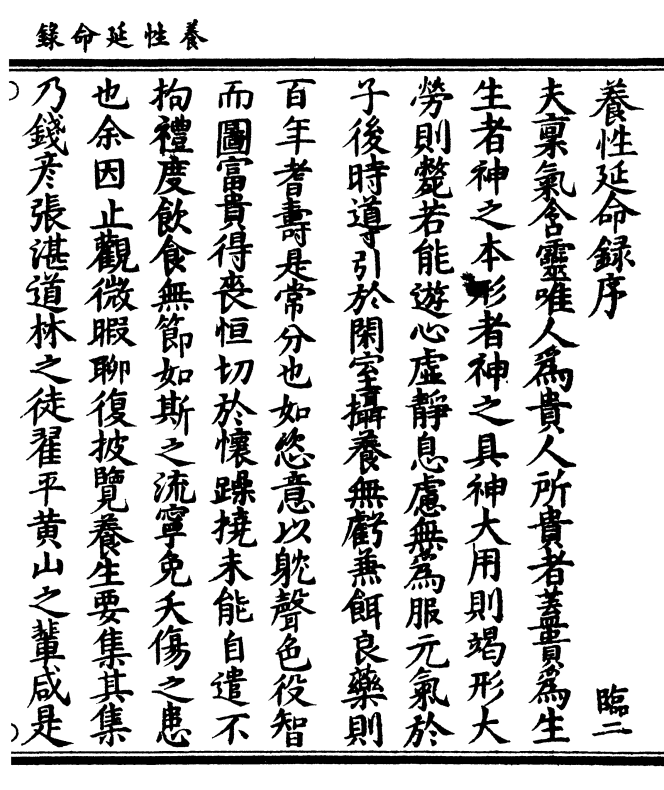 養性延命錄
養性延命録序 臨二
夫稟氣含靈唯人為貴人所貴者蓋貴為生
生者神之本形者神之具神大用則竭形大
勞則斃若能遊心虛靜息慮無為服元氣於
子後時導引於閑室攝養無虧兼餌良藥則
百年耆壽是常分也如恣意以躭聲色役智
而圖富貴得喪恒切於懷躁撓未能自遣不
拘禮度飲食無節如斯之流寧免夭傷之患
也余因止觀微暇聊復披覽養生要集其集
乃錢彥張湛道林之徒翟平黃山之輩咸是